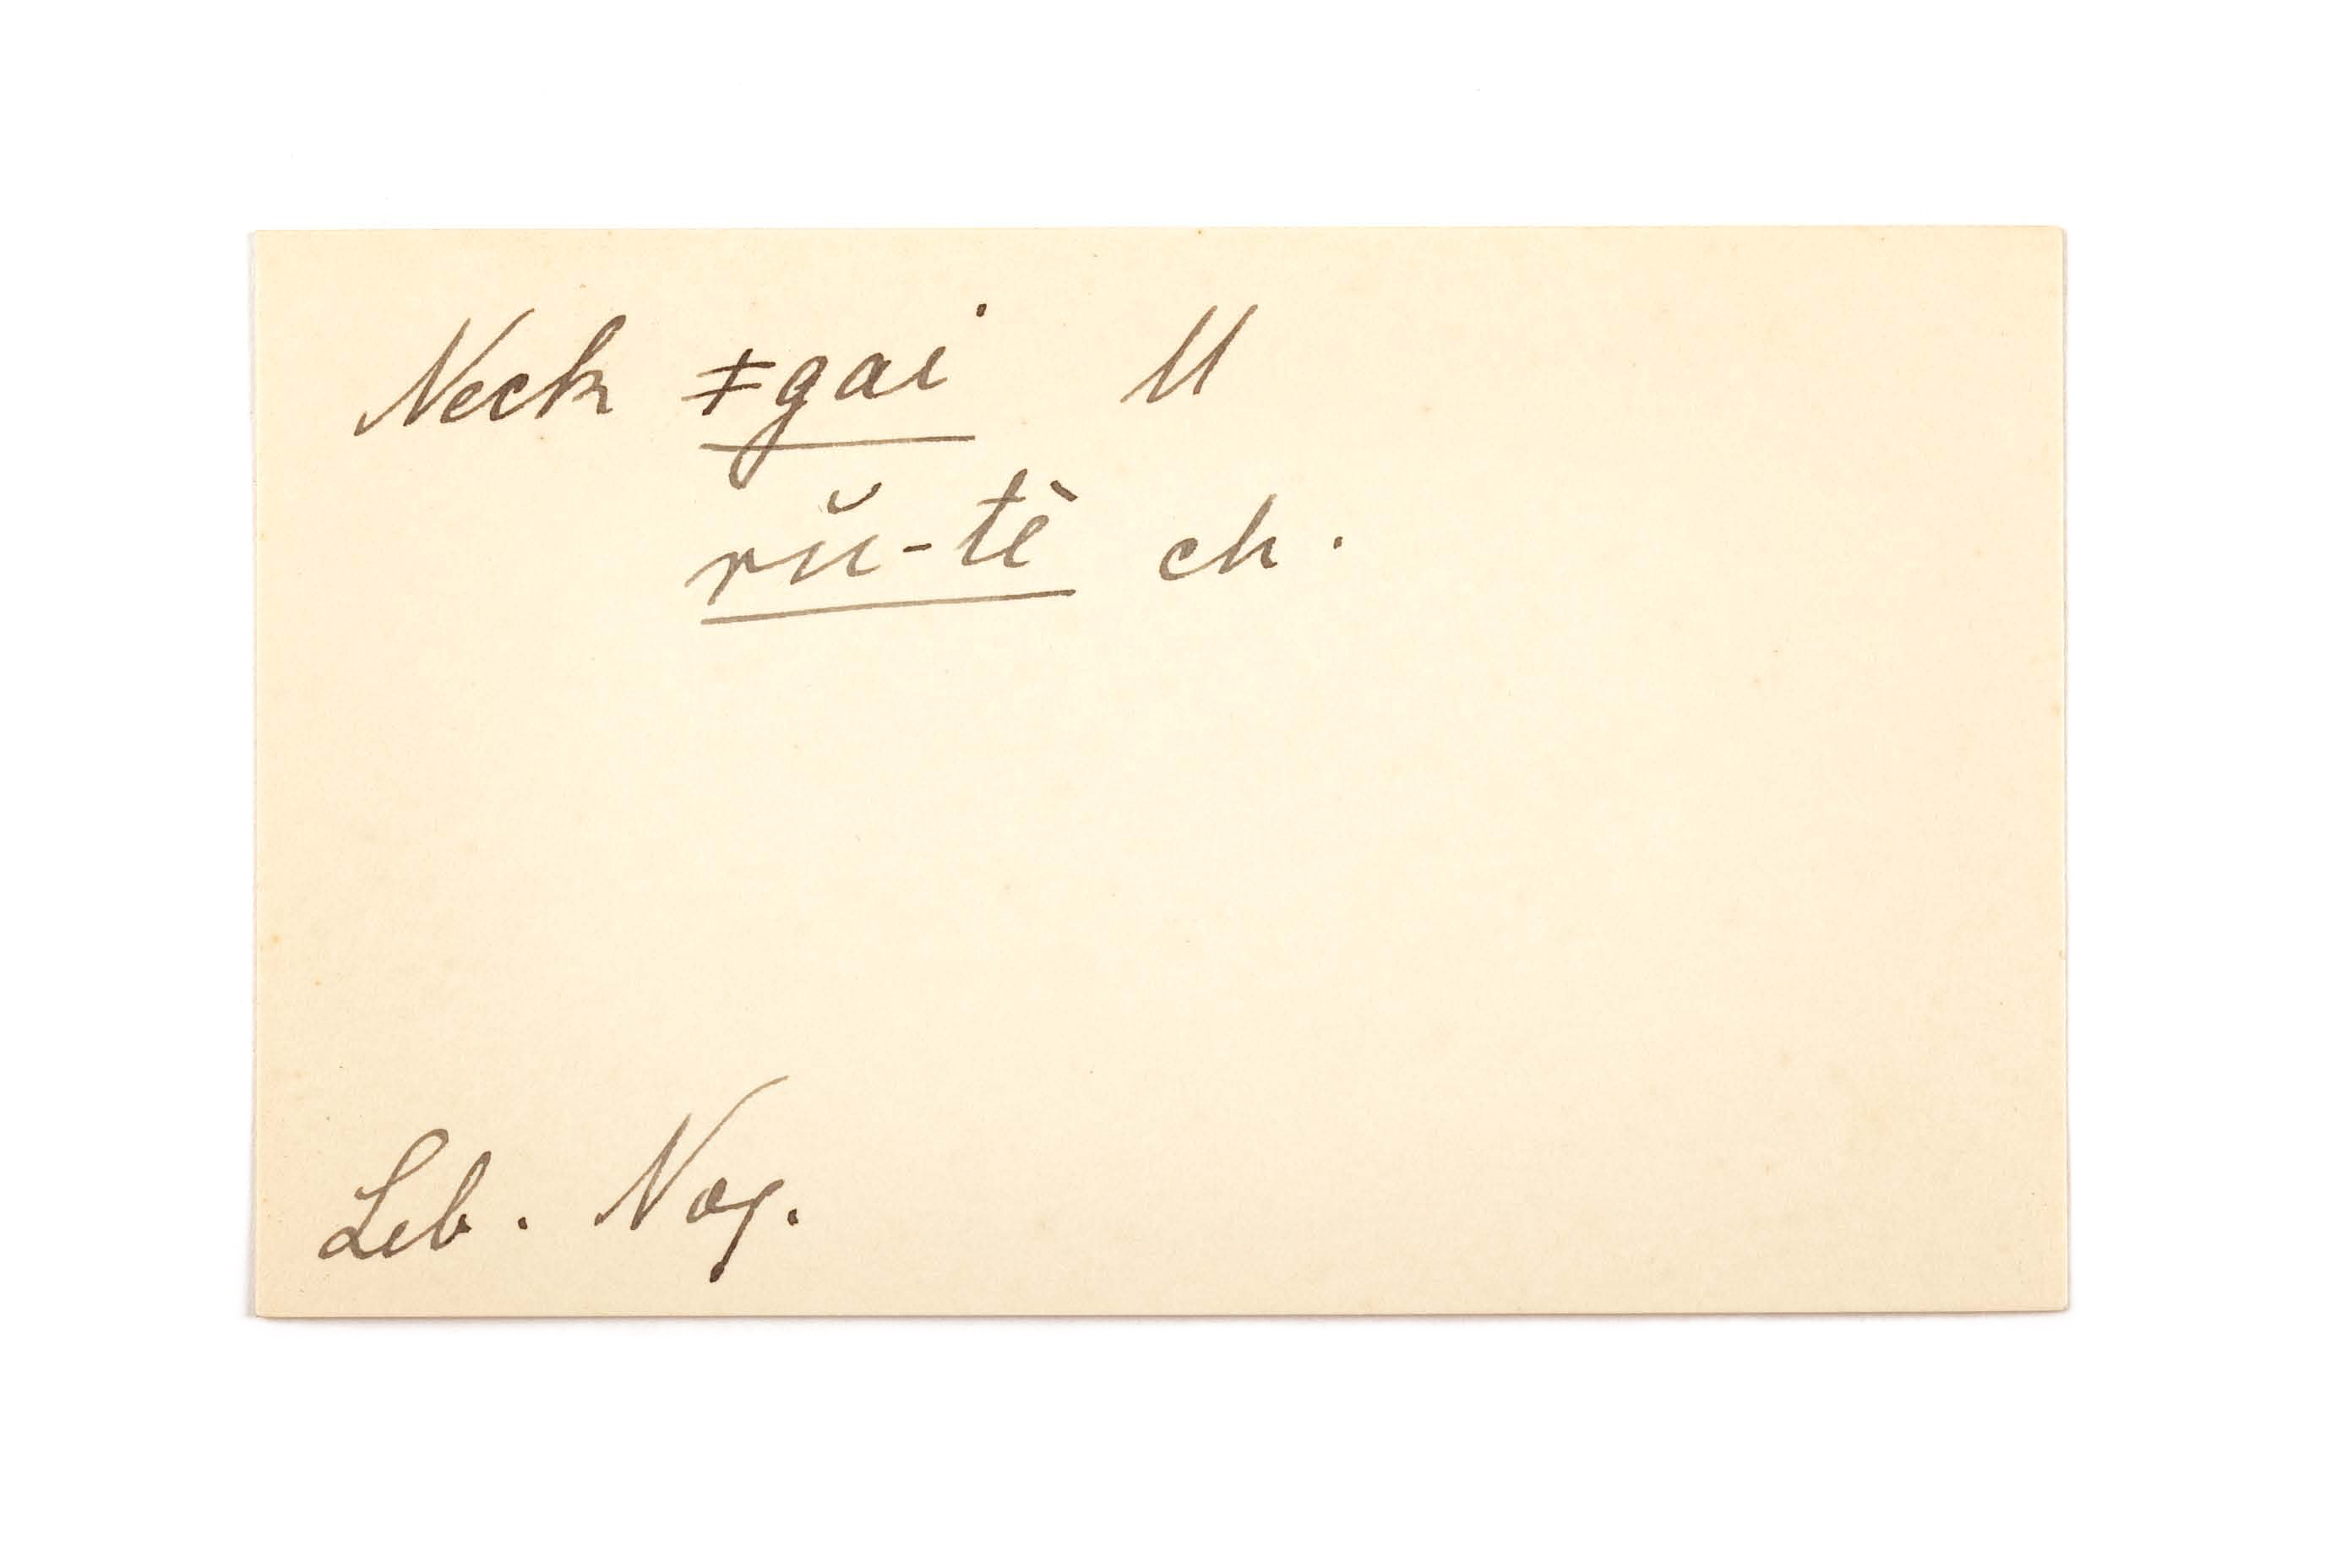 Neck ǂgai M
rŭ-tè ch.
Leb. Nog.